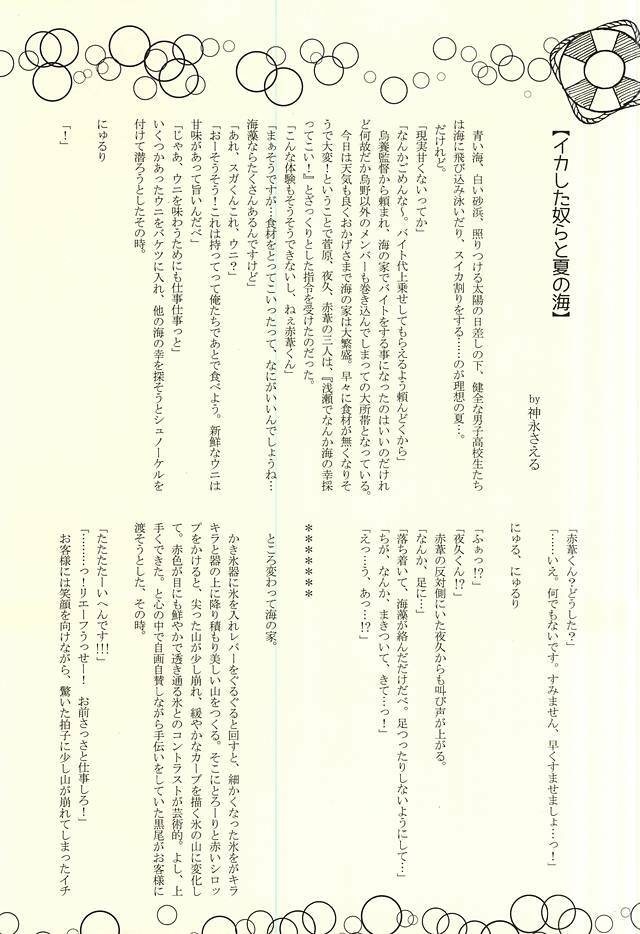 【イカした奴らと夏の海】
by 神永さえる
　青い海、白い砂浜、照りつける太陽の日差しの下、健全な男子高校生たち
は海に飛び込み泳いだり、スイカ割りをする……のが理想の夏…。
　だけれど。
「現実甘くないってか」
「なんかごめんな～。バイト代上乗せしてもらえるよう頼んどくから」
　烏養監督から頼まれ、海の家でバイトをする事になったのはいいのだけれ
ど何故だか烏野以外のメンバーも巻き込んでしまっての大所帯となっている。
　今日は天気も良くおかげさまで海の家は大繁盛。早々に食材が無くなりそ
うで大変！ということで菅原、夜久、赤葦の三人は、『浅瀬でなんか海の幸採
ってこい！』とざっくりとした指令を受けたのだった。
「こんな体験もそうそうできないし、ねぇ赤葦くん」
「まぁそうですが…食材をとってこいったって、なにがいいんでしょうね…
海藻ならたくさんあるんですけど」
「あれ、スガくんこれ、ウニ？」
「おーそうそう！これは持ってって俺たちであとで食べよう。新鮮なウニは
甘味があって旨いんだべ」
「じゃあ、ウニを味わうためにも仕事仕事っと」
いくつかあったウニをバケツに入れ、他の海の幸を探そうとシュノーケルを
付けて潜ろうとしたその時。
にゅるり
「！」
「赤葦くん？どうした？」
「……いえ。何でもないです。すみません、早くすませましょ…っ！」
にゅる、にゅるり
「ふぁっ!?」
「夜久くん!?」
　赤葦の反対側にいた夜久からも叫び声が上がる。
「なんか、足に…」
「落ち着いて、海藻が絡んだだけだべ。足つったりしないようにして…」
「ちが、なんか、まきついて、きて…っ！」
「えっ…う、あっ…!?」
＊＊＊＊＊＊＊
　ところ変わって海の家。
　かき氷器に氷を入れレバーをぐるぐると回すと、細かくなった氷をがキラ
キラと器の上に降り積もり美しい山をつくる。そこにとろーりと赤いシロッ
プをかけると、尖った山が少し崩れ、緩やかなカーブを描く氷の山に変化し
て。赤色が目にも鮮やかで透き通る氷とのコントラストが芸術的。よし、上
手くできた。と心の中で自画自賛しながら手伝いをしていた黒尾がお客様に
渡そうとした、その時。
「たたたたーいへんです!!!」
「………っ！リエーフうっせー！　お前さっさと仕事しろ！」
　お客様には笑顔を向けながら、驚いた拍子に少し山が崩れてしまったイチ